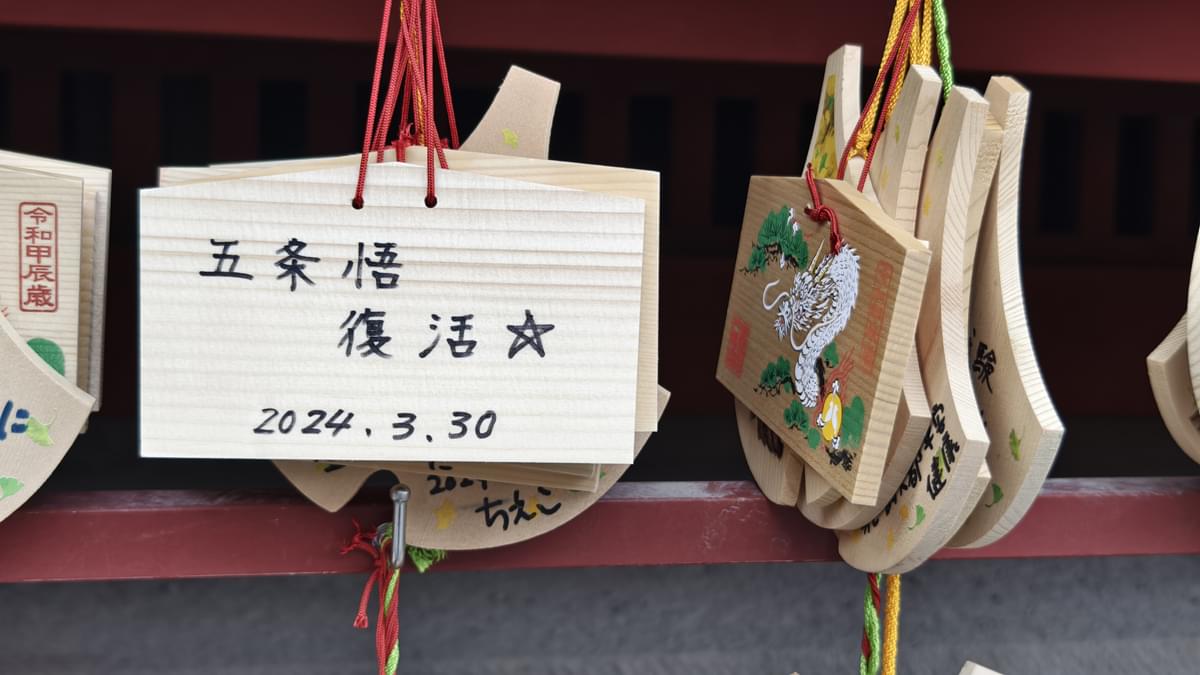 令和甲辰歳
に
五条悟
復活☆
2024.3.30
に
2024
ちえこ
験
安
健康